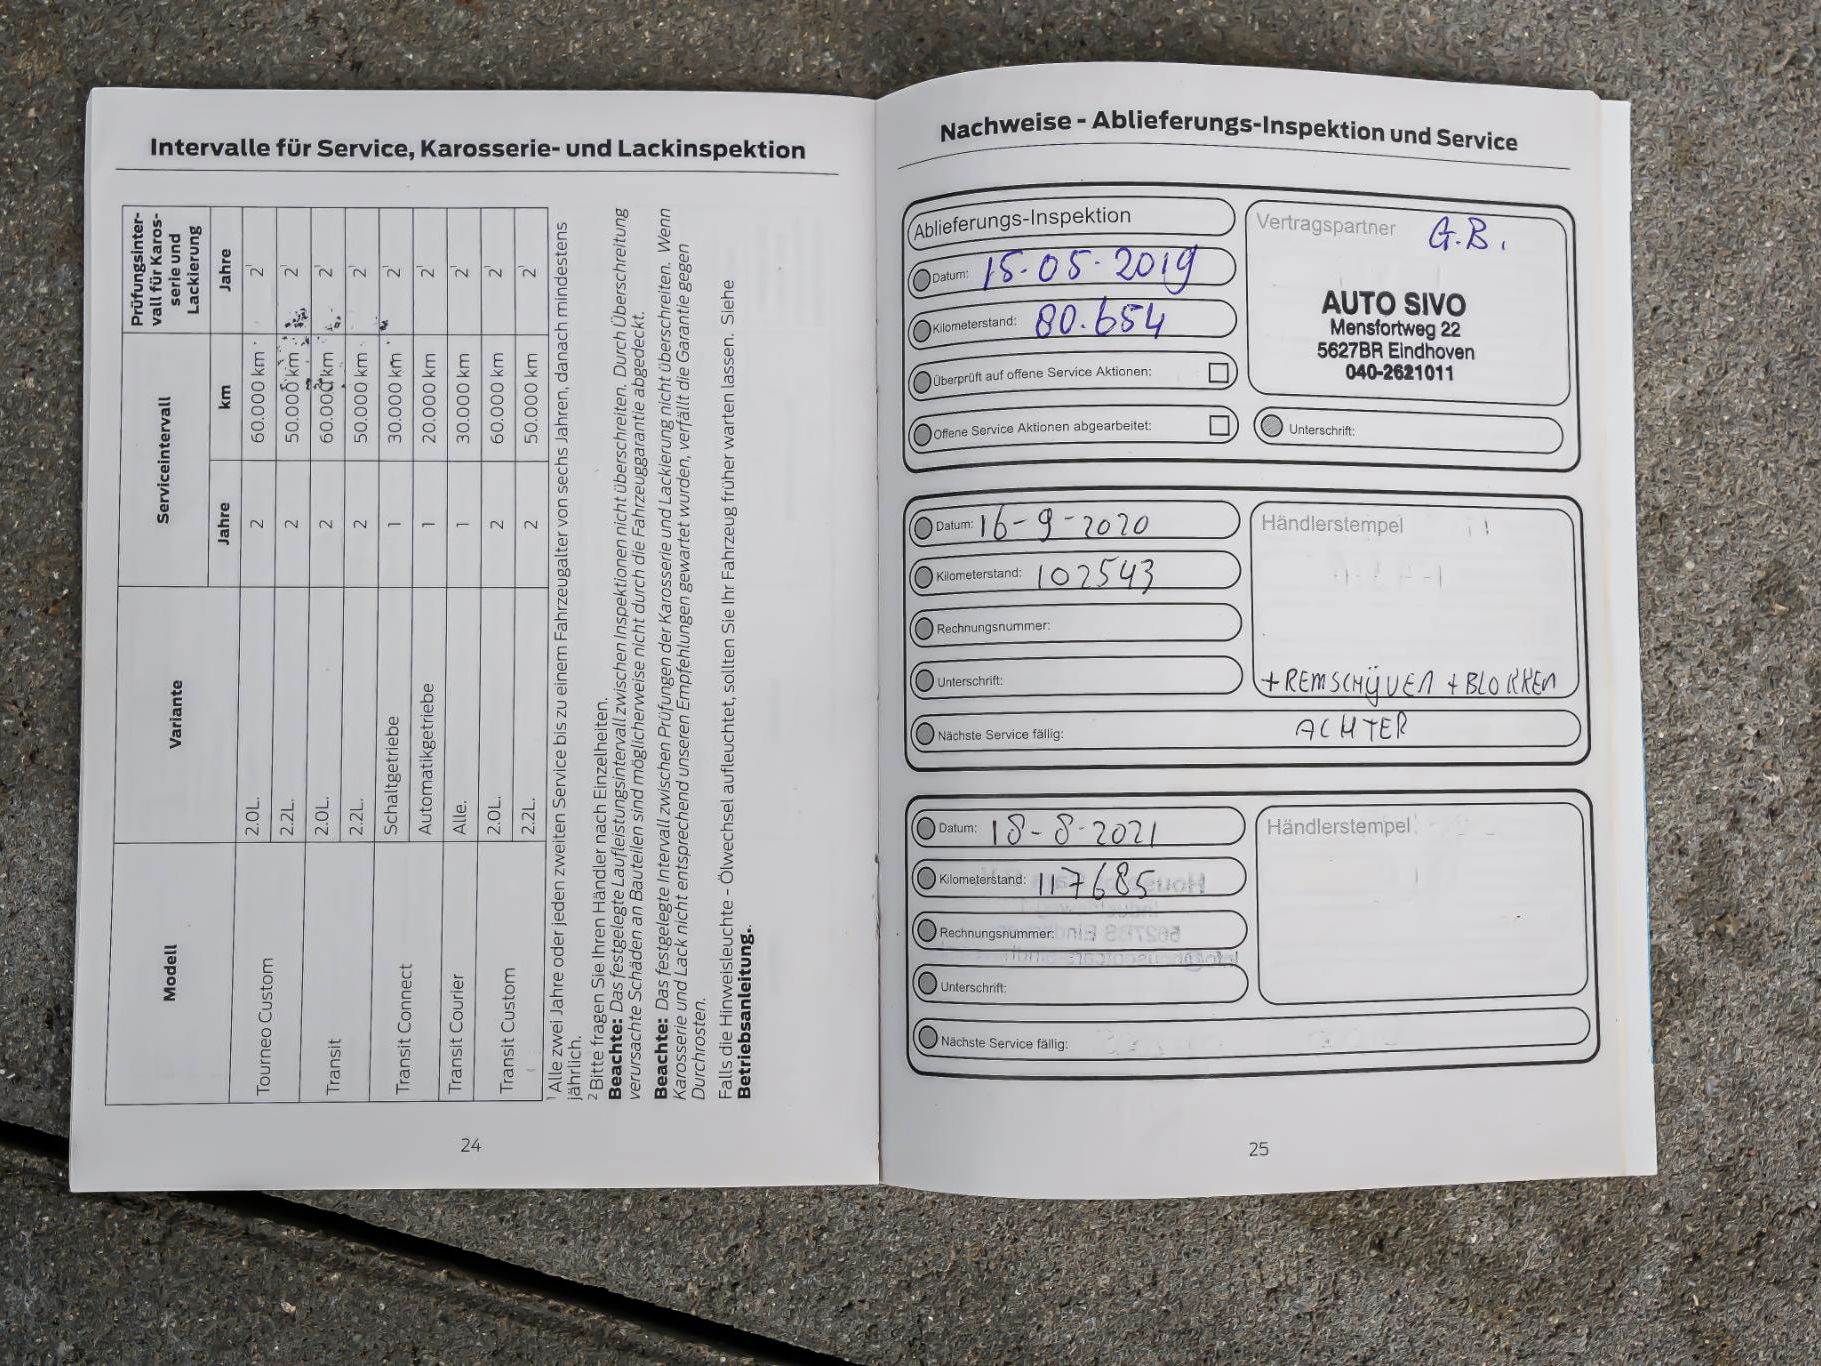 Intervalle für Service, Karosserie- und Lackinspektion
Modell
Variante
Serviceintervall
Prüfungsinter-
vall für Karos-
serie und
Lackierung
Jahre
km
Jahre
Tourneo Custom
2.0L. 2 60.000 km 2¹
2.2L. 2 50.000 km 2¹
Transit
2.0L. 2 60.000 km 2¹
2.2L. 2 50.000 km 2¹
Transit Connect
Schaltgetriebe 1 30.000 km 2¹
Automatikgetriebe 1 20.000 km 2¹
Transit Courier
Alle. 1 30.000 km 2¹
Transit Custom
2.0L. 2 60.000 km 2¹
2.2L. 2 50.000 km 2¹
¹ Alle zwei Jahre oder jeden zweiten Service bis zu einem Fahrzeugalter von sechs Jahren, danach mindestens
jährlich.
² Bitte fragen Sie Ihren Händler nach Einzelheiten.
Beachte: Das festgelegte Laufleistungsintervall zwischen Inspektionen nicht überschreiten. Durch Überschreitung
verursachte Schäden an Bauteilen sind möglicherweise nicht durch die Fahrzeuggarantie abgedeckt.
Beachte: Das festgelegte Intervall zwischen Prüfungen der Karosserie und Lackierung nicht überschreiten. Wenn
Karosserie und Lack nicht entsprechend unseren Empfehlungen gewartet wurden, verfällt die Garantie gegen
Durchrosten.
Falls die Hinweisleuchte - Ölwechsel aufleuchtet, sollten Sie Ihr Fahrzeug früher warten lassen. Siehe
Betriebsanleitung.
24
Nachweise - Ablieferungs-Inspektion und Service
Ablieferungs-Inspektion
Datum: 15-05-2019
Kilometerstand: 80.654
Überprüft auf offene Service Aktionen:
Offene Service Aktionen abgearbeitet:
Vertragspartner G.B.
AUTO SIVO
Mensfortweg 22
5627BR Eindhoven
040-2621011
Unterschrift:
Datum: 16-9-2020
Kilometerstand: 102543
Rechnungsnummer:
Unterschrift:
Händlerstempel
+REMSCHIJVEN +BLOKKEN
ACHTER
Nächste Service fällig:
Datum: 18-8-2021
Kilometerstand: 117685
Rechnungsnummer:
Unterschrift:
Händlerstempel
Nächste Service fällig:
25